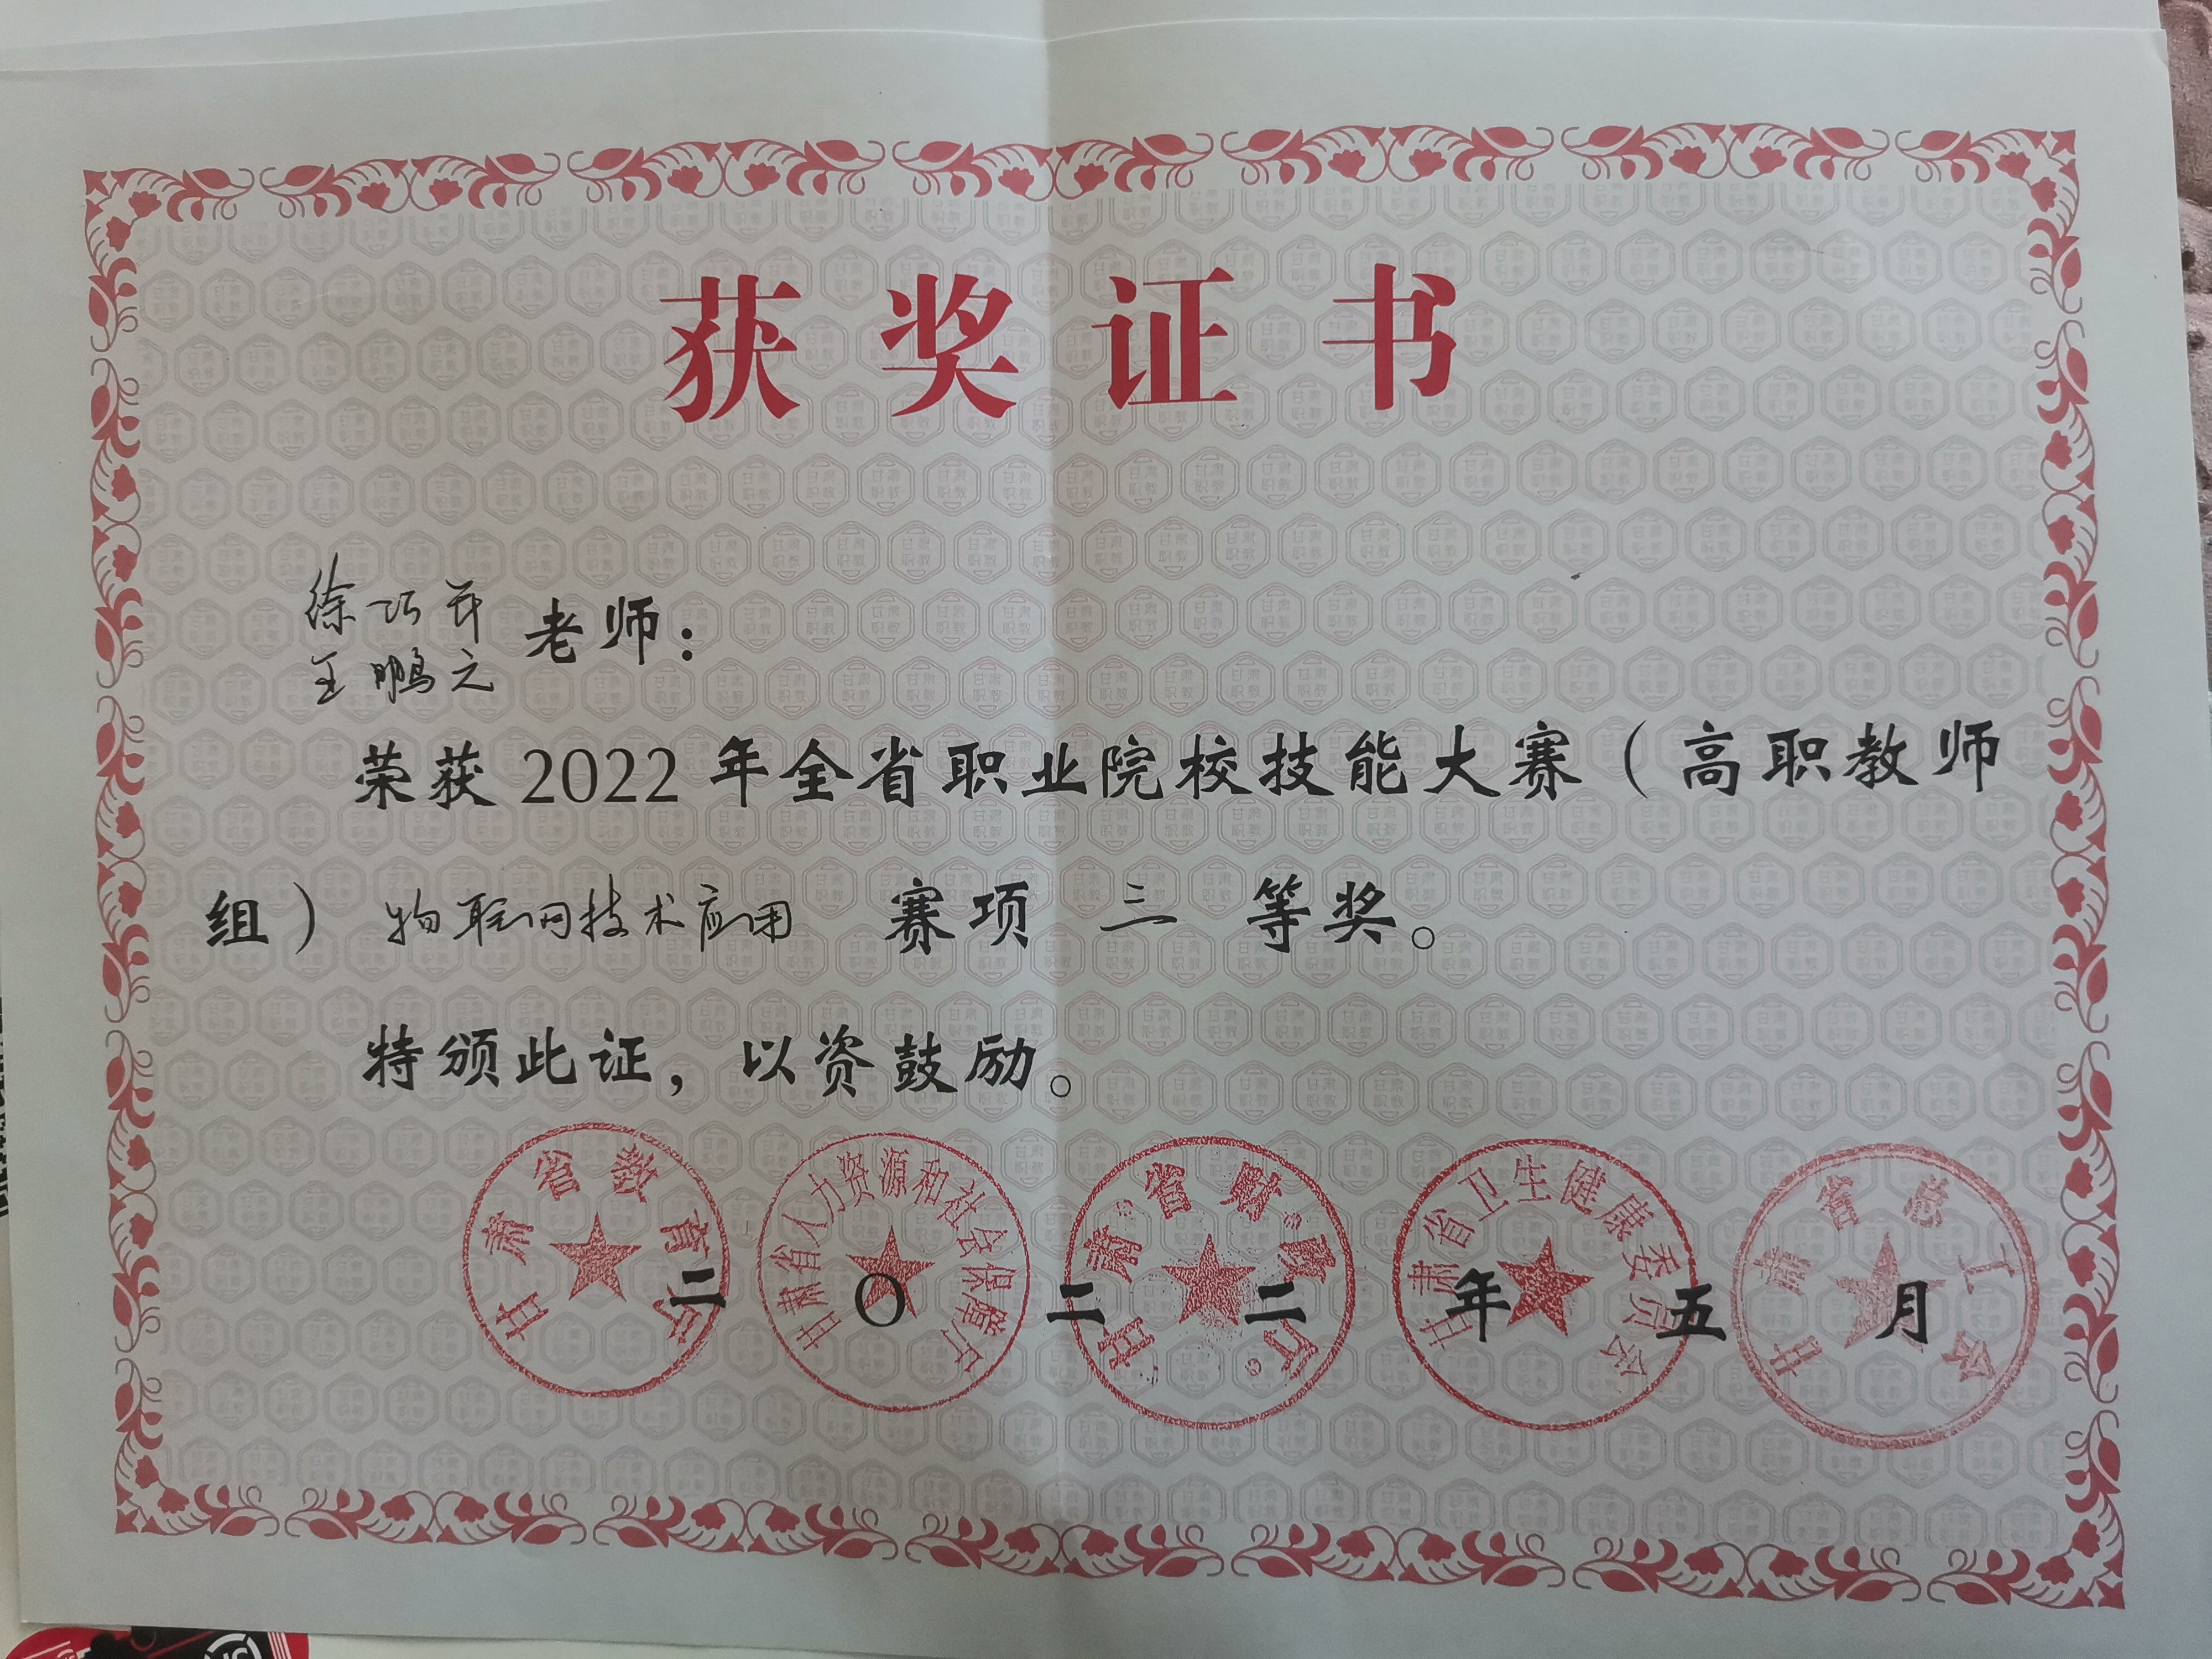 获奖证书
徐巧 老师：
王鹏之
荣获2022年全省职业院校技能大赛（高职教师
组）物联网技术应用 赛项 三 等奖。
特颁此证，以资鼓励。
甘肃省教育厅
甘肃省人力资源和社会保障厅
甘肃省财政厅
甘肃省卫生健康委员会
甘肃省总工会
二〇二二年五月
甘肃
职教